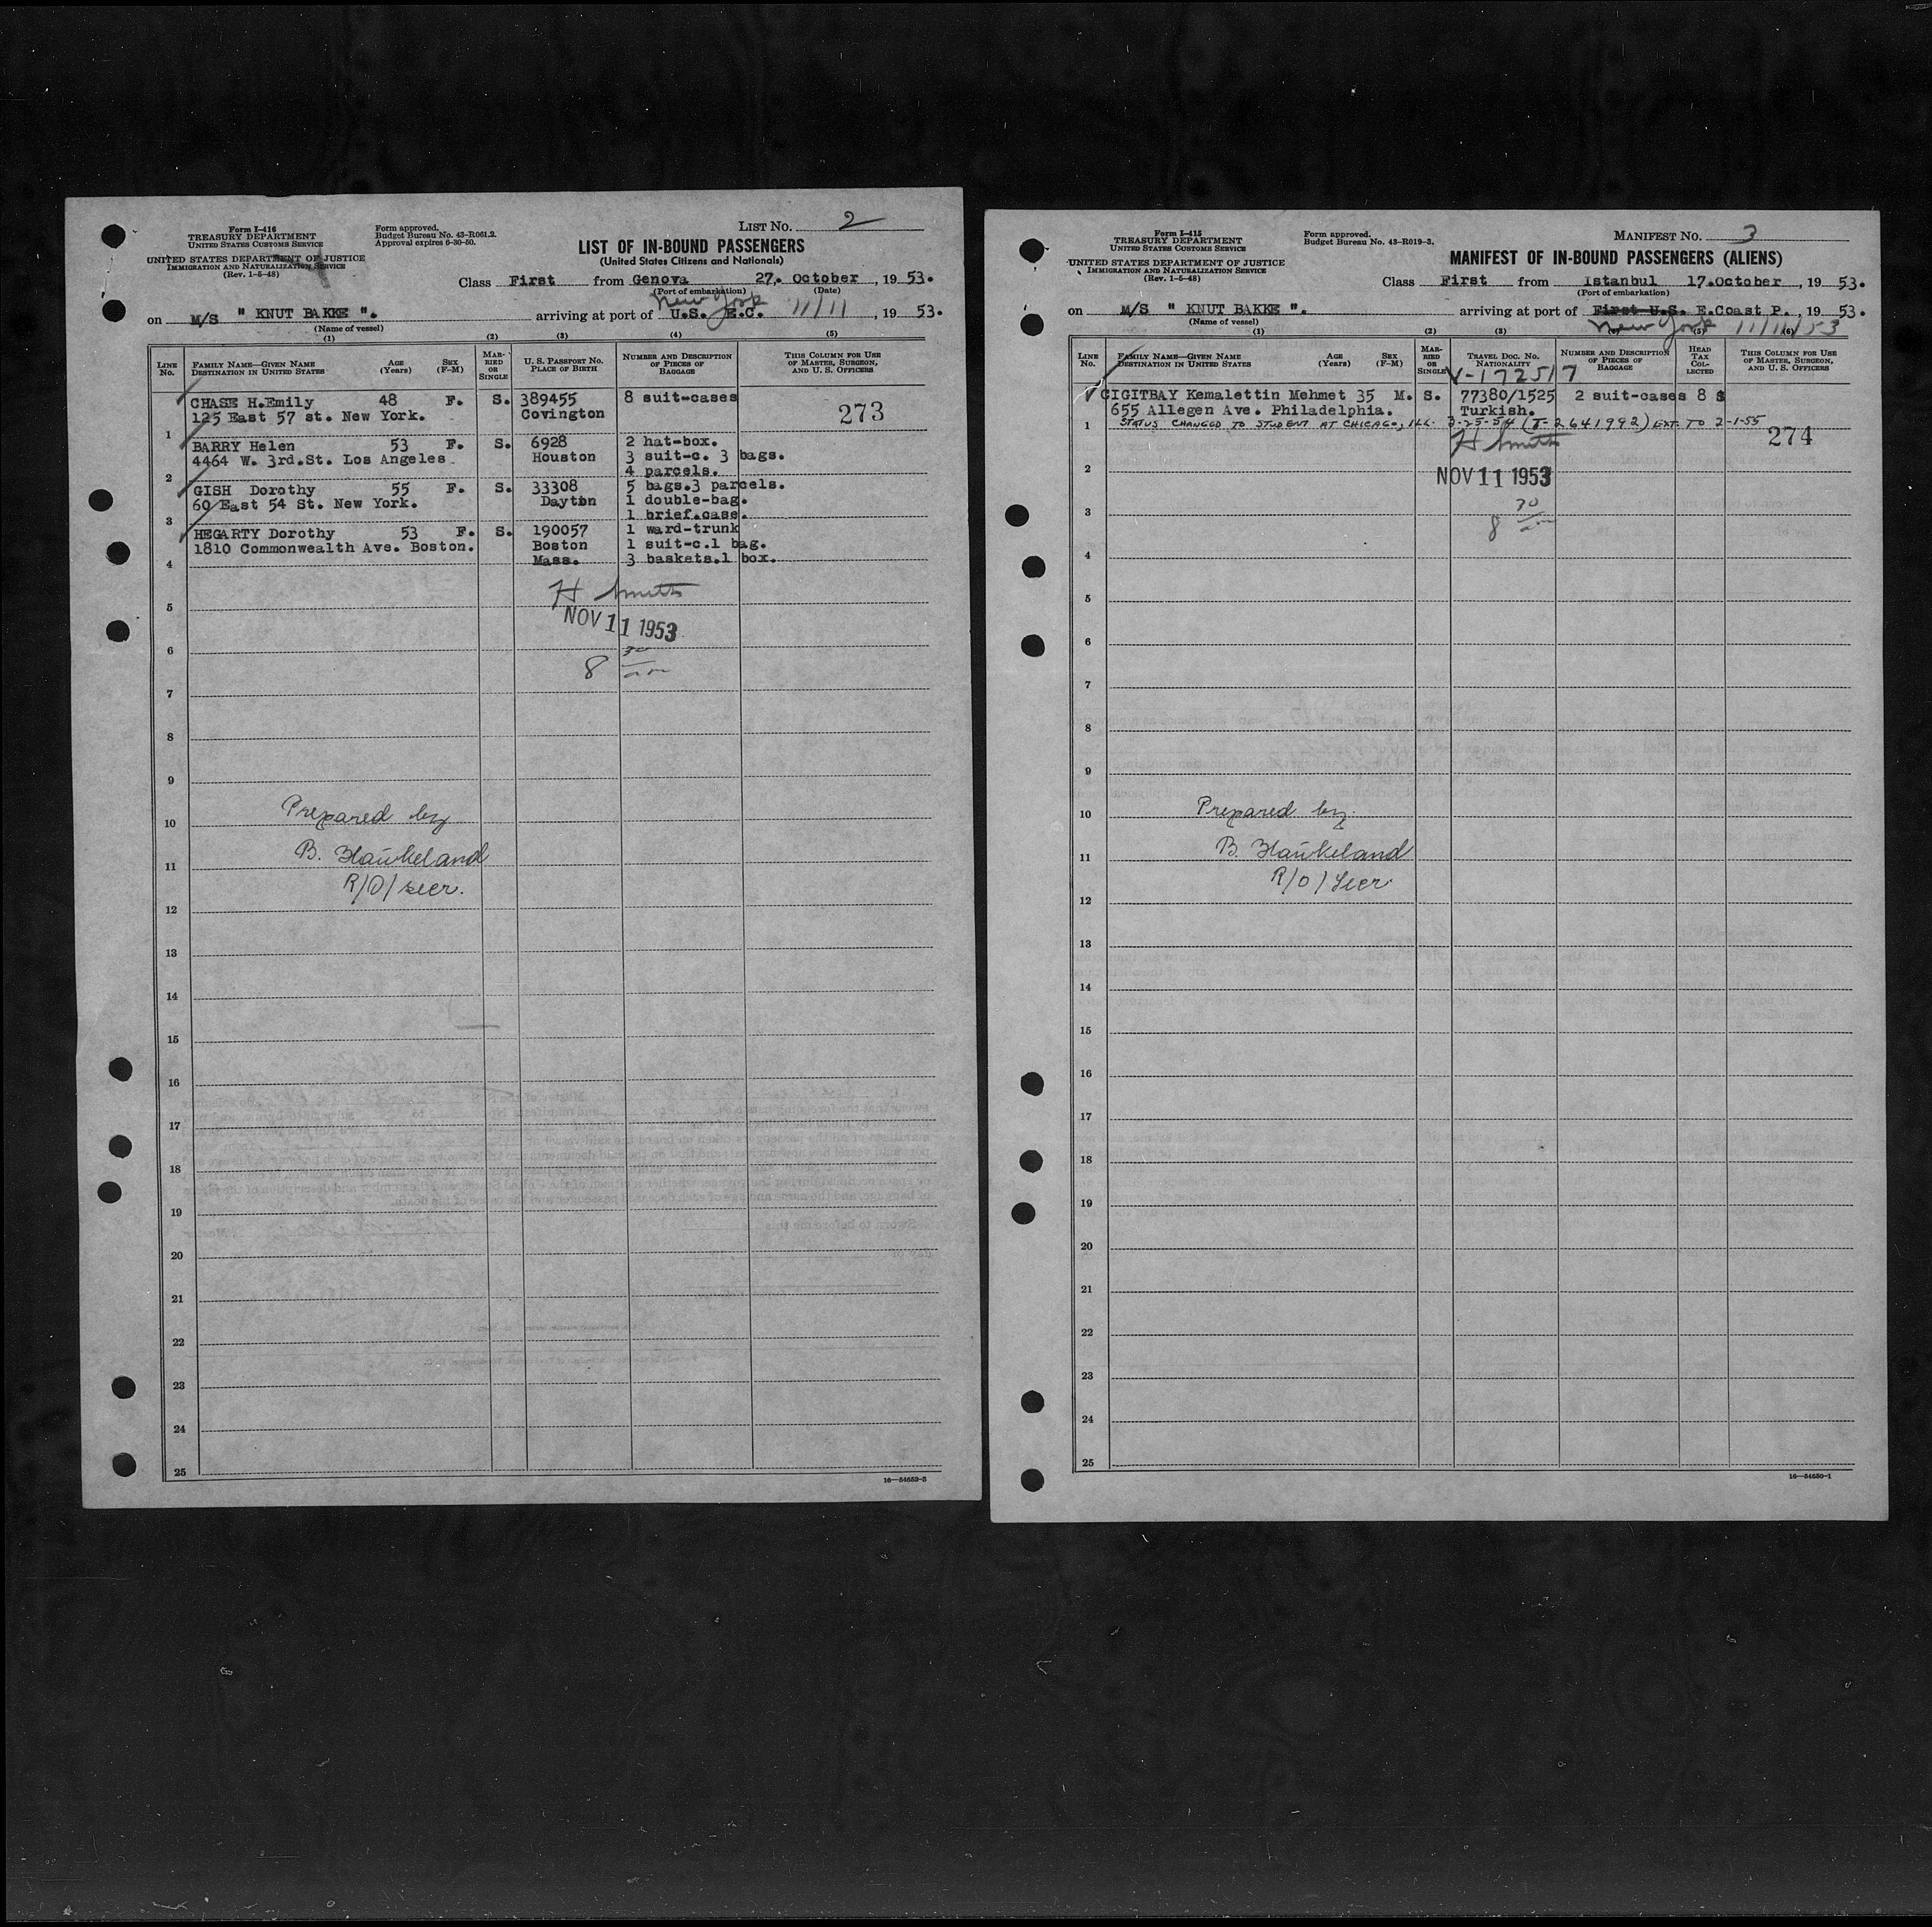 Form I-416
TREASURY DEPARTMENT
UNITED STATES CUSTOMS SERVICE
UNITED STATES DEPARTMENT OF JUSTICE
IMMIGRATION AND NATURALIZATION SERVICE
(Rev. 1-5-48)
Form approved.
Budget Bureau No. 43-R061.2.
Approval expires 6-30-50.
LIST NO. 2
LIST OF IN-BOUND PASSENGERS
(United States Citizens and Nationals)
Class First from Genova 27. October, 1953.
(Port of embarkation) (Date)
New York
on M/S " KNUT BAKKE ". arriving at port of U.S. E.C. 11/11, 1953.
(Name of vessel)
(1) (2) (3) (4) (5)
LINE No. FAMILY NAME—GIVEN NAME DESTINATION IN UNITED STATES AGE (Years) SEX (F-M) MARRIED OR SINGLE U. S. PASSPORT NO. PLACE OF BIRTH NUMBER AND DESCRIPTION OF PIECES OF BAGGAGE THIS COLUMN FOR USE OF MASTER, SURGEON, AND U. S. OFFICERS
CHASE H.Emily 48 F. S. 389455 8 suit-cases
125 East 57 st. New York. Covington 273
1
BARRY Helen 53 F. S. 6928 2 hat-box.
4464 W. 3rd.St. Los Angeles Houston 3 suit-c. 3 bags.
2 4 parcels.
GISH Dorothy 55 F. S. 33308 5 bags.3 parcels.
60 East 54 St. New York. Dayton 1 double-bag.
3 1 brief.case.
HEGARTY Dorothy 53 F. S. 190057 1 ward-trunk
1810 Commonwealth Ave. Boston. Boston 1 suit-c.1 bag.
4 Mass. 3 baskets.1 box.
H Smith
5
NOV 11 1953
6
8 30 am
7
8
9
Prepared by
10
B. Haukeland
11
R/O/secr.
12
13
14
15
16
17
18
19
20
21
22
23
24
25
16—54652-3
Form I-415
TREASURY DEPARTMENT
UNITED STATES CUSTOMS SERVICE
UNITED STATES DEPARTMENT OF JUSTICE
IMMIGRATION AND NATURALIZATION SERVICE
(Rev. 1-5-48)
Form approved.
Budget Bureau No. 43-R019-3.
MANIFEST NO. 3
MANIFEST OF IN-BOUND PASSENGERS (ALIENS)
Class First from Istanbul 17.October, 1953.
(Port of embarkation)
on M/S " KNUT BAKKE ". arriving at port of First U.S. E.Coast P., 1953.
(Name of vessel) New York 11/11/53
(1) (2) (3) (4) (5) (6)
LINE No. FAMILY NAME—GIVEN NAME DESTINATION IN UNITED STATES AGE (Years) SEX (F-M) MARRIED OR SINGLE TRAVEL DOC. NO. NATIONALITY NUMBER AND DESCRIPTION OF PIECES OF BAGGAGE HEAD TAX COLLECTED THIS COLUMN FOR USE OF MASTER, SURGEON, AND U. S. OFFICERS
V-172517
CIGITBAY Kemalettin Mehmet 35 M. S. 77380/1525 2 suit-cases 8 $
655 Allegen Ave. Philadelphia. Turkish.
1 STATUS CHANGED TO STUDENT AT CHICAGO, ILL. 3-25-54 (T-2641992) EXT. TO 2-1-55
H Smith 274
2
NOV 11 1953
3
8 30 am
4
5
6
7
8
9
Prepared by.
10
B. Haukeland
11
R/O/Secr.
12
13
14
15
16
17
18
19
20
21
22
23
24
25
16—54650-1